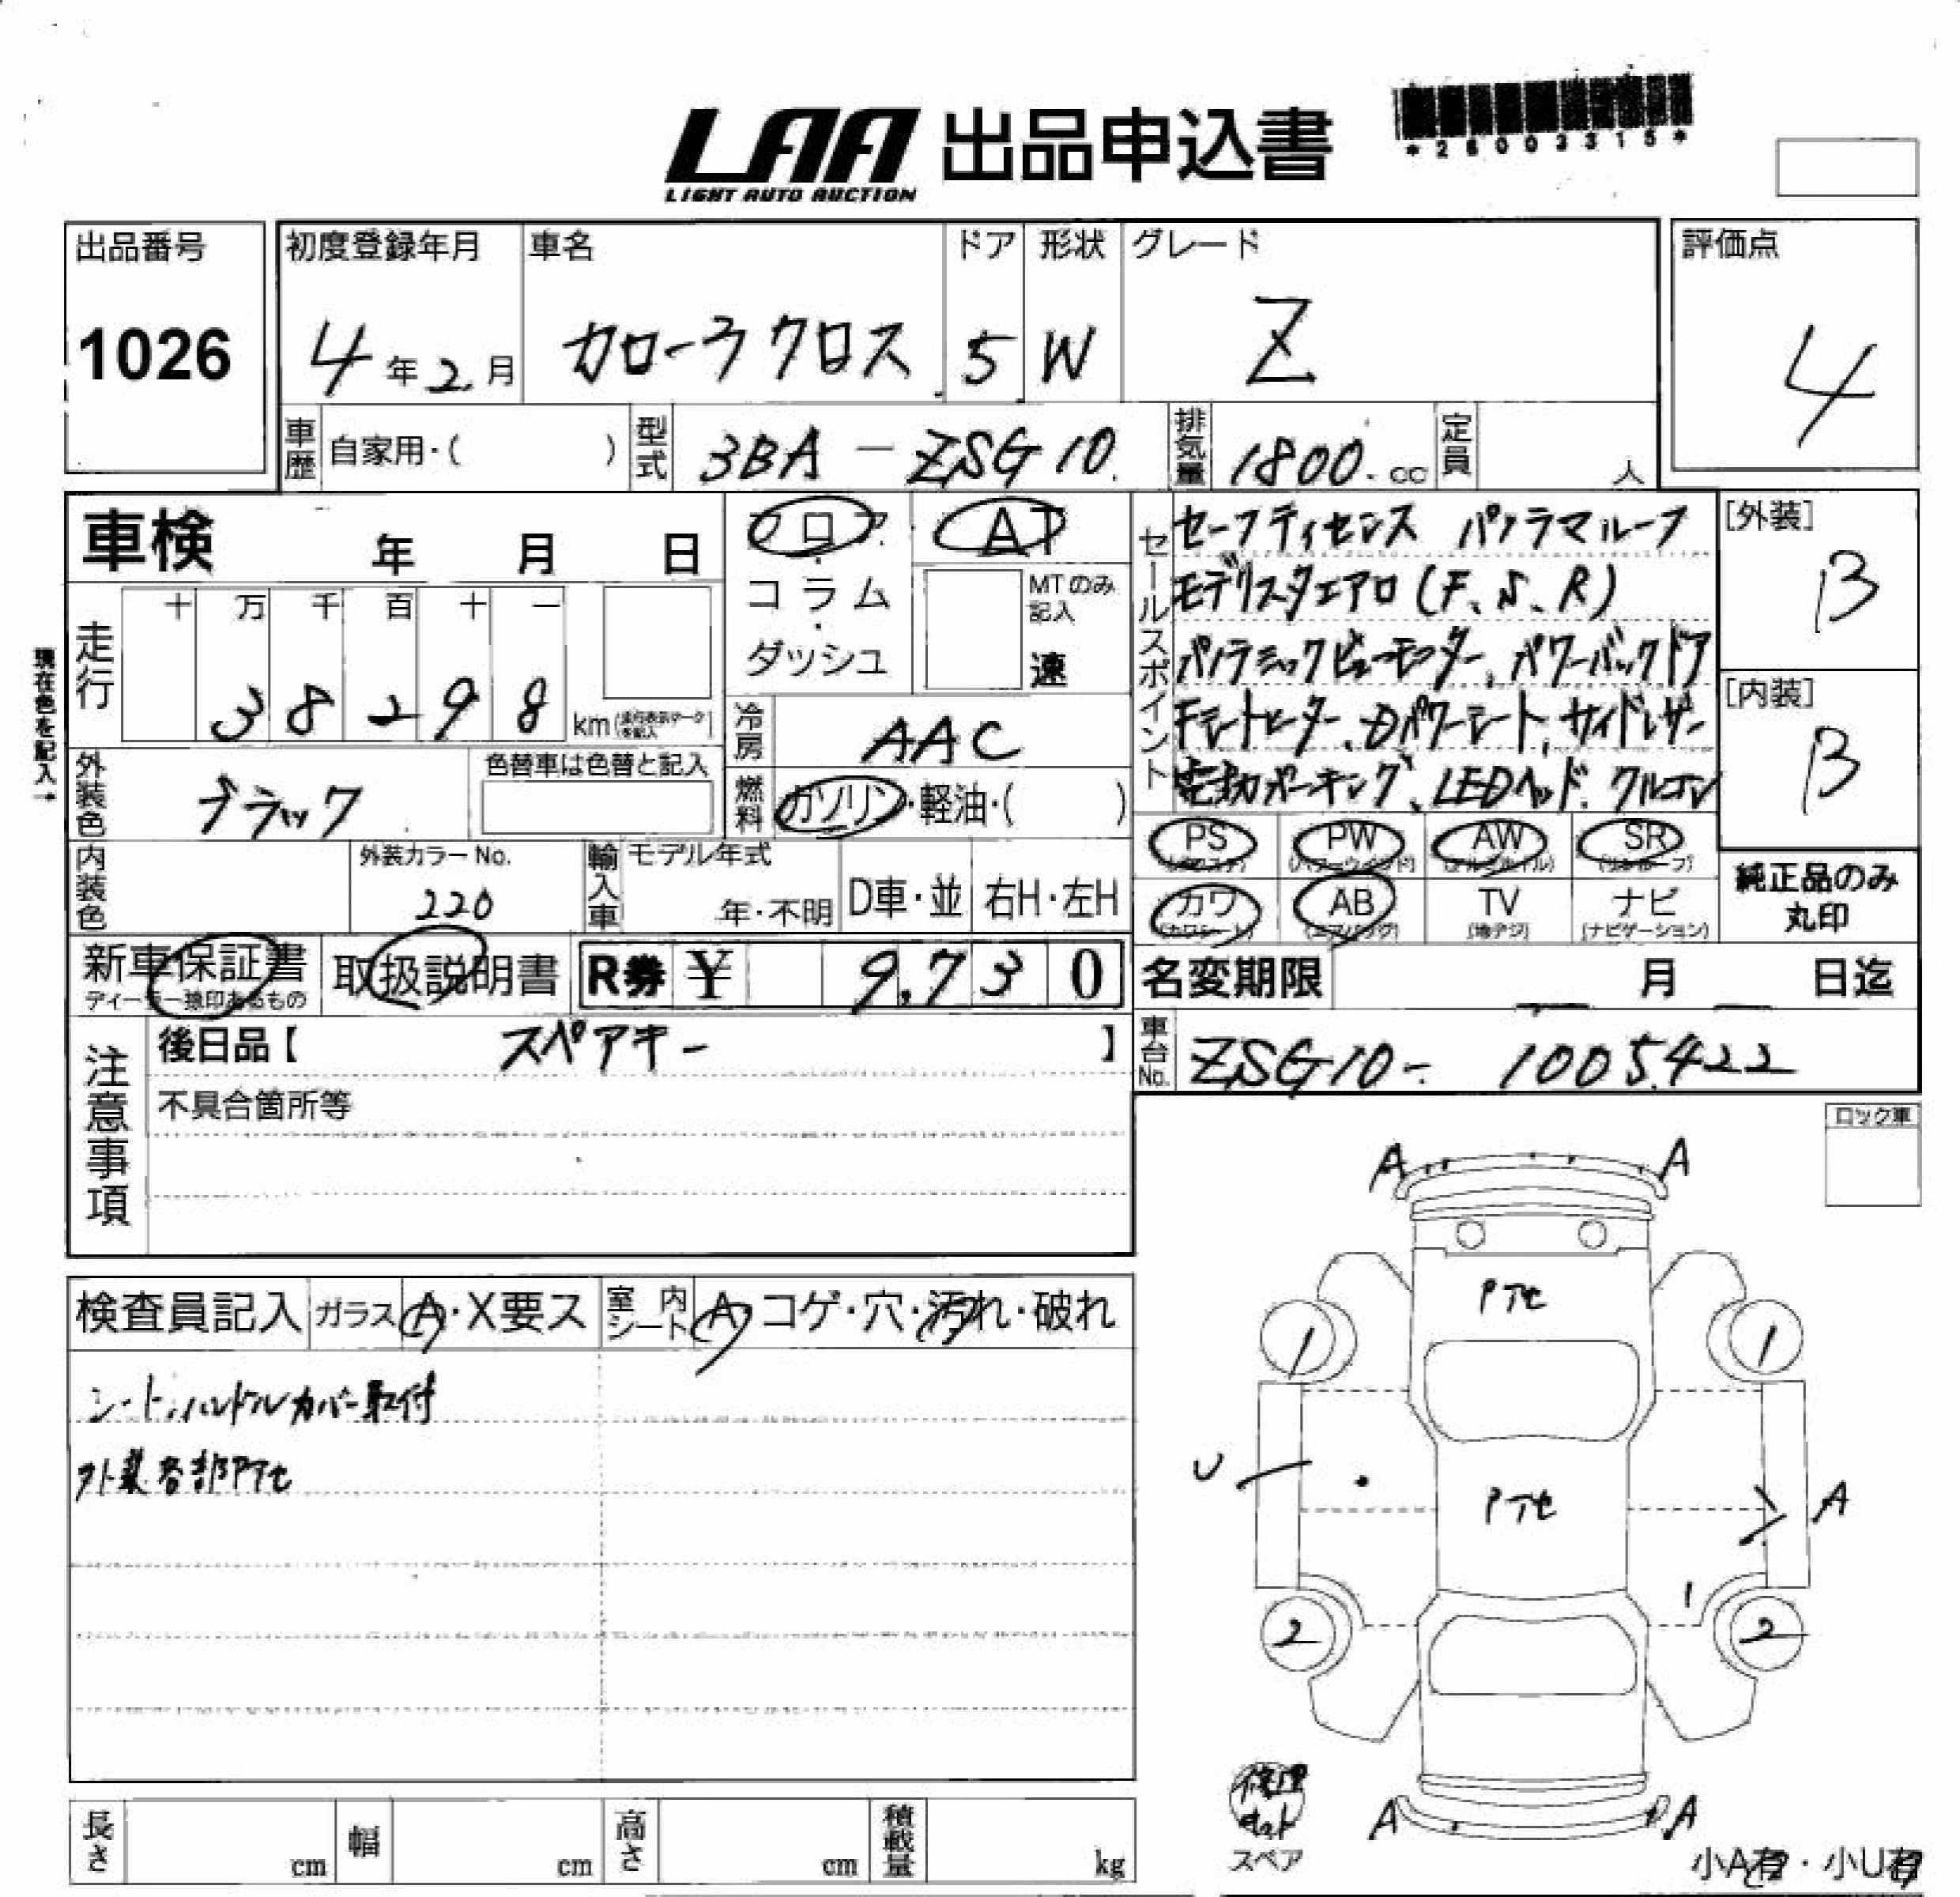 LAA 出品申込書
LIGHT AUTO AUCTION
*26003315*
出品番号
1026
初度登録年月
4年2月
車名
カローラクロス
ドア
5
形状
W
グレード
Z
評価点
4
車歴 自家用・( )
型式 3BA-ZSG10
排気量 1800.cc
定員 人
車検 年 月 日
現在色を記入→
走行
十 万 千 百 十 一
3 8 2 9 8 km
フロア
・
コラム
・
ダッシュ
AT
MTのみ
記入
速
冷房 AAC
燃料 ガソリン・軽油・( )
セールスポイント
セーフティセンス パノラマルーフ
モデリスタエアロ(F、S、R)
パノラミックビューモニター、パワーバックドア
Fシートヒーター、Dパワーシート、サイドレザー
電動パーキング、LEDヘッド、クルコン
[外装]
B
[内装]
B
外装色 ブラック
色替車は色替と記入
内装色
外装カラーNo.
220
輸入車 モデル年式
年・不明
D車・並
右H・左H
PS PW AW SR
(パワステ) (パワーウィンド) (アルミホイル) (サンルーフ)
カワ AB TV ナビ
(カワシート) (エアバッグ) (地デジ) (ナビゲーション)
純正品のみ
丸印
新車保証書
ディーラー捺印あるもの
取扱説明書
R券 ¥ 9,730
名変期限 月 日迄
注意事項
後日品【 スペアキー 】
不具合箇所等
車台No. ZSG10-1005422
ロック車
検査員記入 ガラス A・X要ス 室内シート A・コゲ・穴・汚れ・破れ
シート、ハンドルカバー取付
外装各部PTセ
A A
PTセ
1 1
U
PTセ
A
1
2 2
A A
修理
キット
スペア
小A有・小U有
長さ cm 幅 cm 高さ cm 積載量 kg